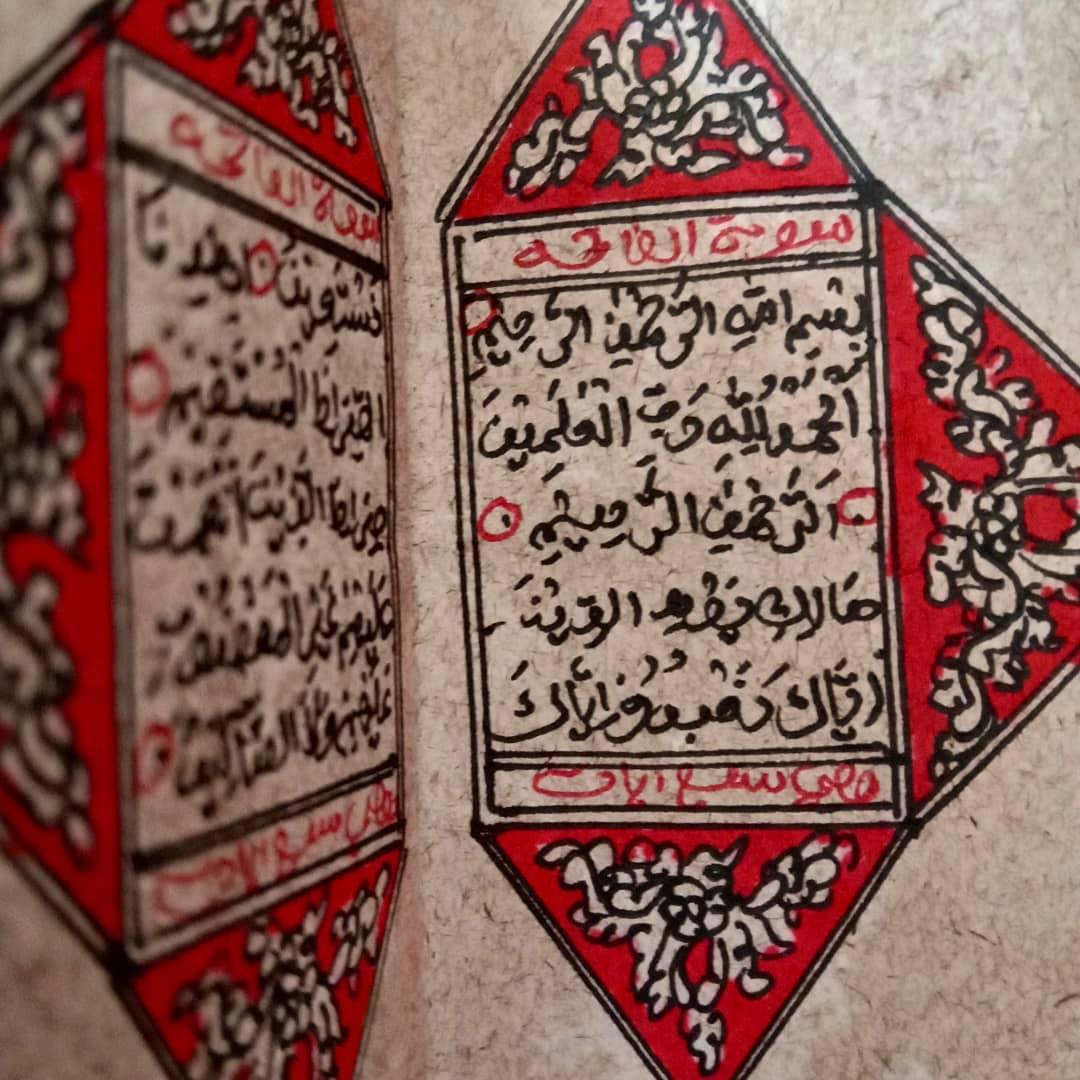 سورة الفاتحه
بِسْمِ اللَّهِ الرَّحْمٰنِ الرَّحِيْمِ
اَلْحَمْدُ لِلّٰهِ رَبِّ الْعٰلَمِيْنَ
اَلرَّحْمٰنِ الرَّحِيْمِ
مَالِكِ يَوْمِ الدِّيْنِ
اِيَّاكَ نَعْبُدُ وَاِيَّاكَ
وهي سبع ايات
سورة الفاتحه
نَسْتَعِيْنُ اِهْدِنَا
الصِّرَاطَ الْمُسْتَقِيْمَ
صِرَاطَ الَّذِيْنَ اَنْعَمْتَ
عَلَيْهِمْ غَيْرِ الْمَغْضُوْبِ
عَلَيْهِمْ وَلَا الضَّآلِّيْنَ
وهي سبع ايات